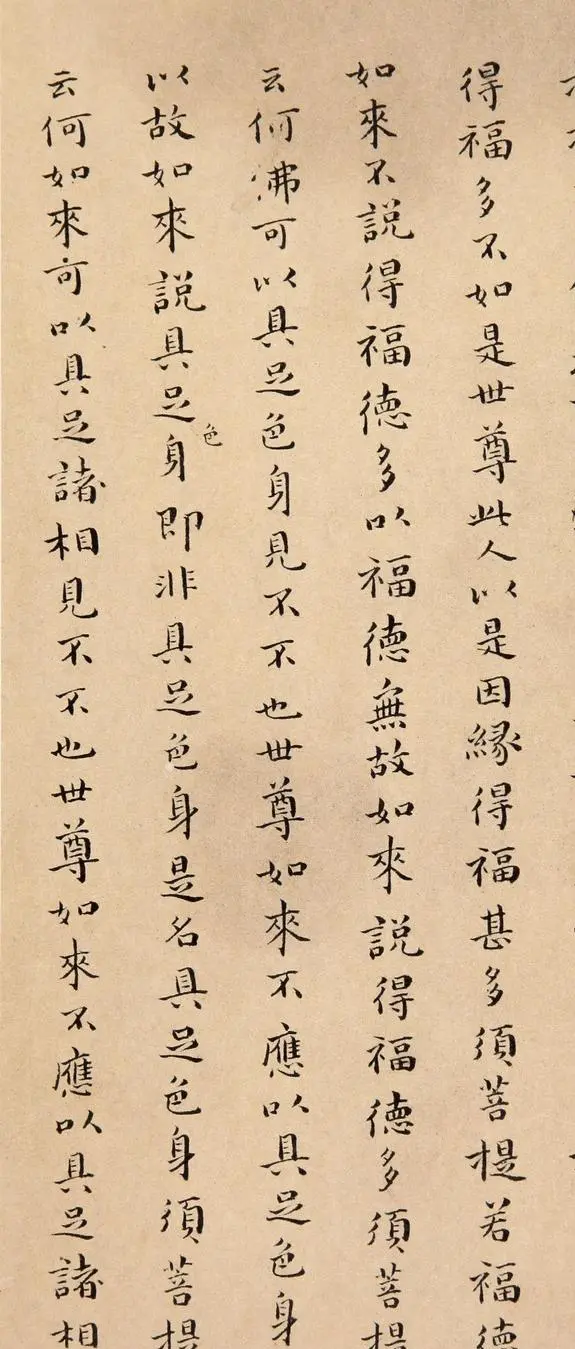 得福多不如是世尊此人以是因緣得福甚多須菩提若福德
如來不說得福德多以福德無故如來說得福德多須菩提
云何佛可以具足色身見不不也世尊如來不應以具足色身
以故如來說具足色身即非具足色身是名具足色身須菩提
云何如來可以具足諸相見不不也世尊如來不應以具足諸相